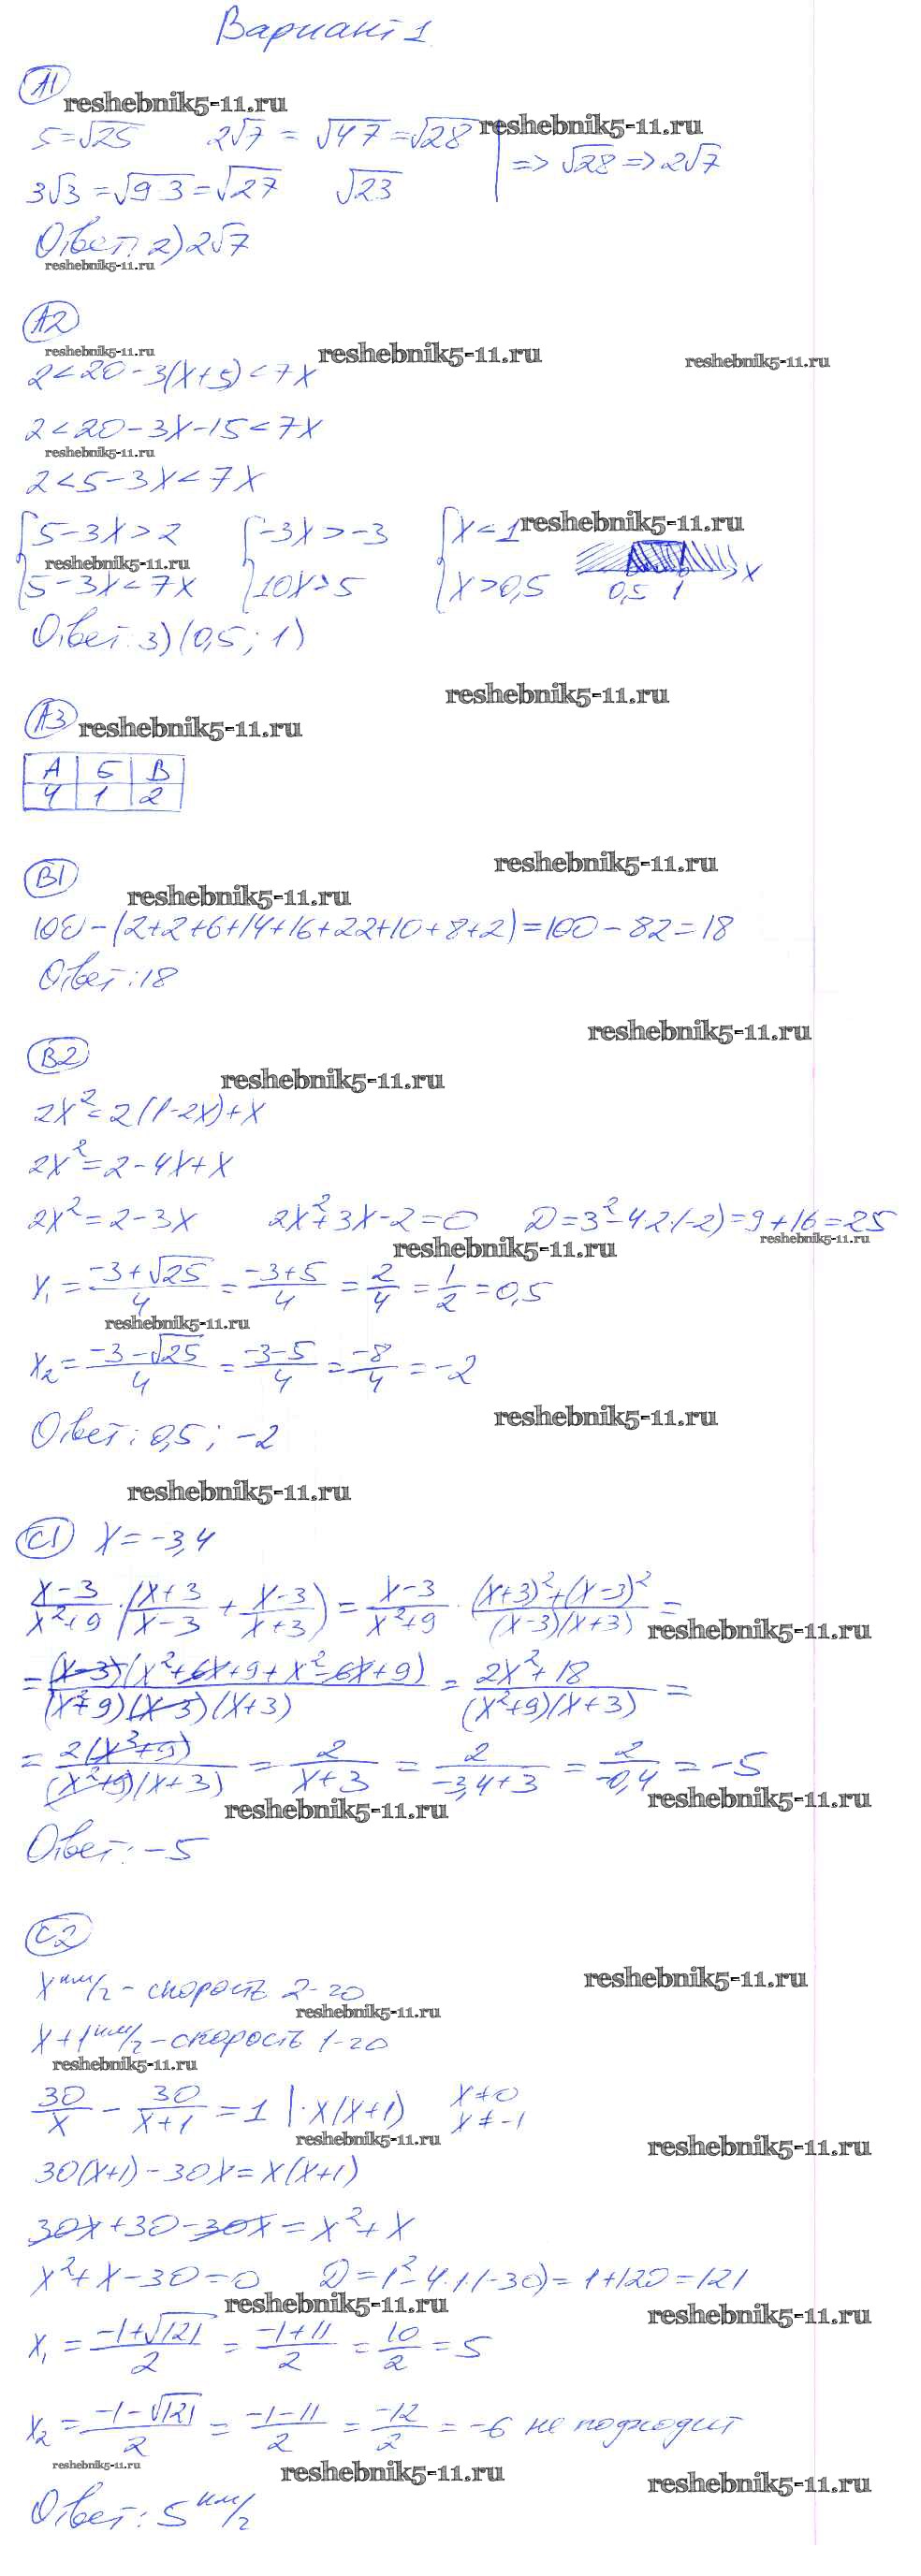 Вариант 1
А1
reshebnik5-11.ru
5=√25 2√7 = √4·7 = √28 reshebnik5-11.ru
3√3 = √9·3 = √27 √23 => √28 => 2√7
Ответ: 2) 2√7
reshebnik5-11.ru
А2
reshebnik5-11.ru reshebnik5-11.ru reshebnik5-11.ru
2<20-3(x+5)<7x
2<20-3x-15<7x
reshebnik5-11.ru
2<5-3x<7x
5-3x>2 -3x>-3 x<1 reshebnik5-11.ru
reshebnik5-11.ru
5-3x<7x 10x>5 x>0,5 0,5 1 x
Ответ: 3) (0,5; 1)
reshebnik5-11.ru
А3 reshebnik5-11.ru
А Б В
4 1 2
reshebnik5-11.ru
В1
reshebnik5-11.ru
100-(2+2+6+14+16+22+10+8+2)=100-82=18
Ответ: 18
reshebnik5-11.ru
В2
reshebnik5-11.ru
2x²=2(1-2x)+x
2x²=2-4x+x
2x²=2-3x 2x²+3x-2=0 D=3²-4·2·(-2)=9+16=25
reshebnik5-11.ru reshebnik5-11.ru
x₁=(-3+√25)/4=(-3+5)/4=2/4=1/2=0,5
reshebnik5-11.ru
x₂=(-3-√25)/4=(-3-5)/4=-8/4=-2
reshebnik5-11.ru
Ответ: 0,5; -2
reshebnik5-11.ru
С1 x=-3,4
(x-3)/(x²+9)·((x+3)/(x-3)+(x-3)/(x+3))=(x-3)/(x²+9)·((x+3)²+(x-3)²)/((x-3)(x+3))=
reshebnik5-11.ru
=(x-3)(x²+6x+9+x²-6x+9)/((x²+9)(x-3)(x+3))=(2x²+18)/((x²+9)(x+3))=
=2(x²+9)/((x²+9)(x+3))=2/(x+3)=2/(-3,4+3)=2/(-0,4)=-5
reshebnik5-11.ru reshebnik5-11.ru
Ответ: -5
С2
reshebnik5-11.ru
x км/г - скорость 2-го
reshebnik5-11.ru
x+1 км/г - скорость 1-го
reshebnik5-11.ru
30/x - 30/(x+1) = 1 |·x(x+1) x≠0 x≠-1
reshebnik5-11.ru reshebnik5-11.ru
30(x+1)-30x=x(x+1)
30x+30-30x=x²+x
x²+x-30=0 D=1²-4·1·(-30)=1+120=121
reshebnik5-11.ru reshebnik5-11.ru
x₁=(-1+√121)/2=(-1+11)/2=10/2=5
x₂=(-1-√121)/2=(-1-11)/2=-12/2=-6 не подходит
reshebnik5-11.ru reshebnik5-11.ru reshebnik5-11.ru
Ответ: 5 км/г